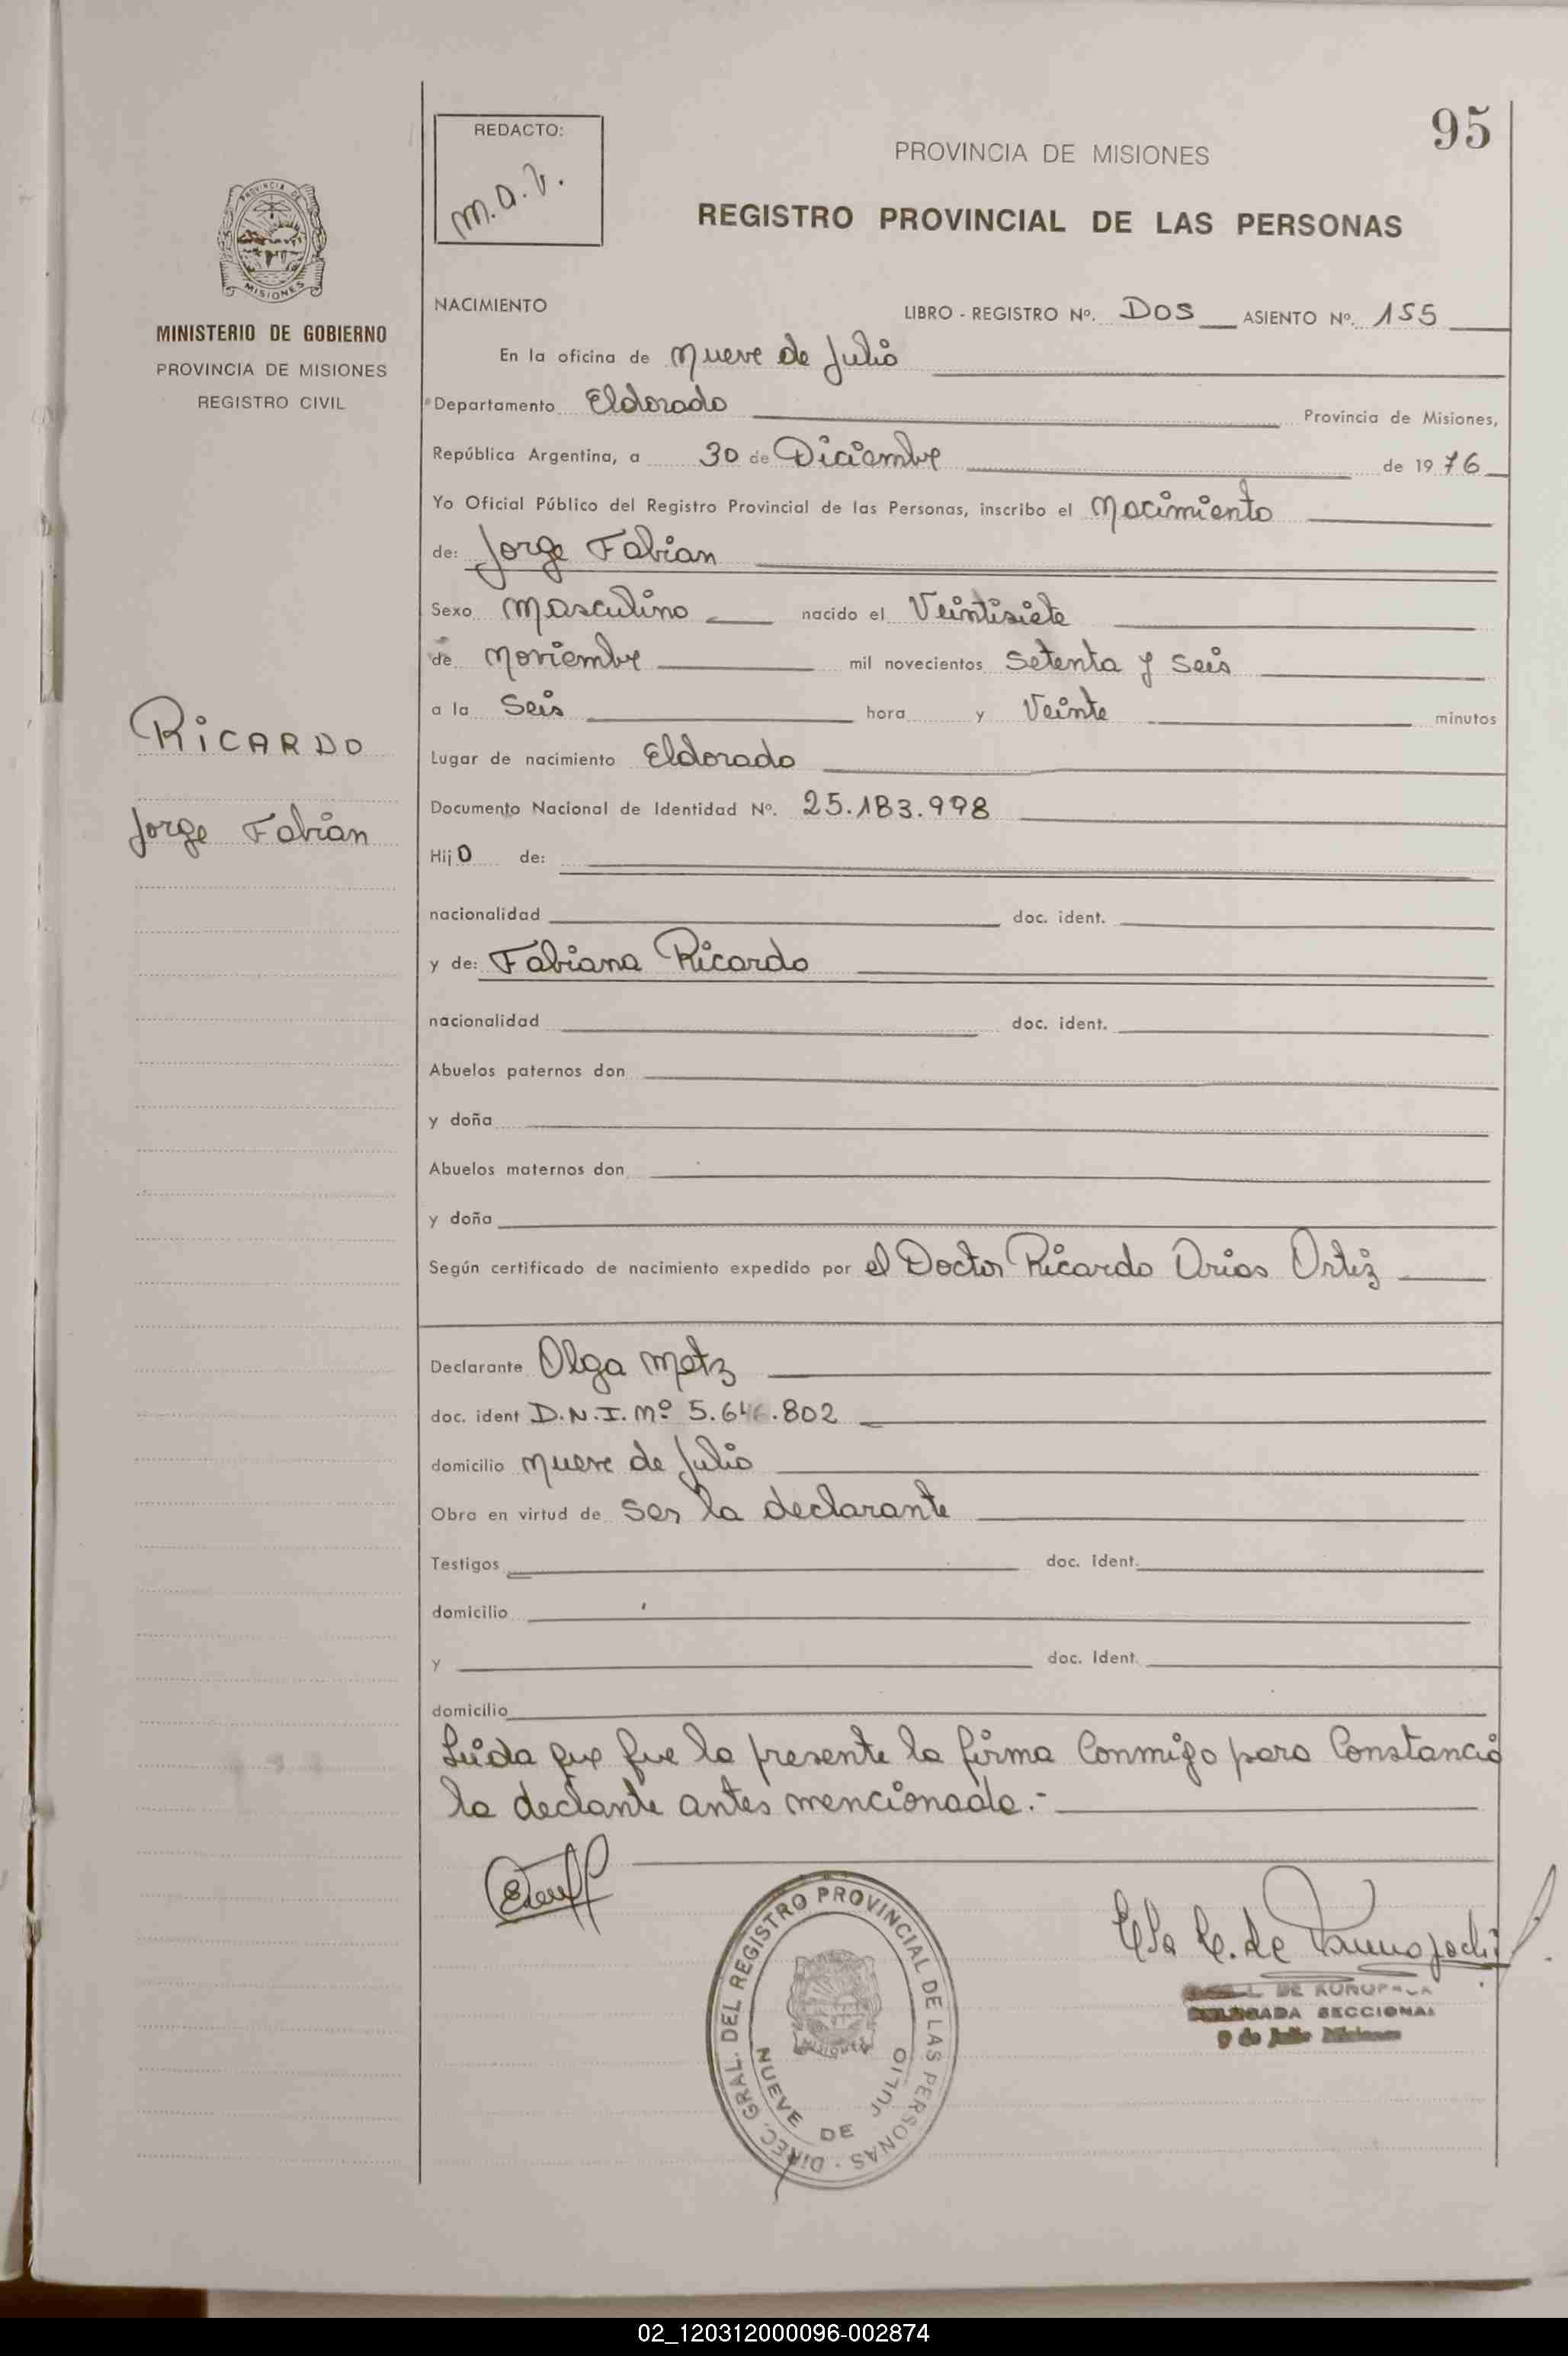 95
REDACTO:
m.a.v.
PROVINCIA DE MISIONES
REGISTRO PROVINCIAL DE LAS PERSONAS
PROVINCIA DE
MISIONES
MINISTERIO DE GOBIERNO
PROVINCIA DE MISIONES
REGISTRO CIVIL
NACIMIENTO LIBRO - REGISTRO Nº. DOS ASIENTO Nº. 155
En la oficina de Nueve de Julio
Departamento Eldorado Provincia de Misiones,
República Argentina, a 30 de Diciembre de 1976
Yo Oficial Público del Registro Provincial de las Personas, inscribo el Nacimiento
de: Jorge Fabian
Sexo Masculino nacido el Veintisiete
de Noviembre mil novecientos Setenta y Seis
a la Seis hora y Veinte minutos
RICARDO
Jorge Fabian
Lugar de nacimiento Eldorado
Documento Nacional de Identidad Nº. 25.183.998
Hijo de:
nacionalidad doc. ident.
y de: Fabiana Ricardo
nacionalidad doc. ident.
Abuelos paternos don
y doña
Abuelos maternos don
y doña
Según certificado de nacimiento expedido por el Doctor Ricardo Arias Ortiz
Declarante Olga Metz
doc. ident D.N.I. Nº
domicilio Nueve de Julio
Obra en virtud de Ser la declarante
Testigos doc. ident.
domicilio
y doc. Ident.
domicilio
Leida que fue la presente la firma Conmigo para Constancia
la declante antes mencionada.-
DIREC. GRAL. DEL REGISTRO PROVINCIAL DE LAS PERSONAS
MISIONES
NUEVE DE JULIO
DELEGADA SECCIONAL
9 de Julio Misiones
02_120312000096-002874